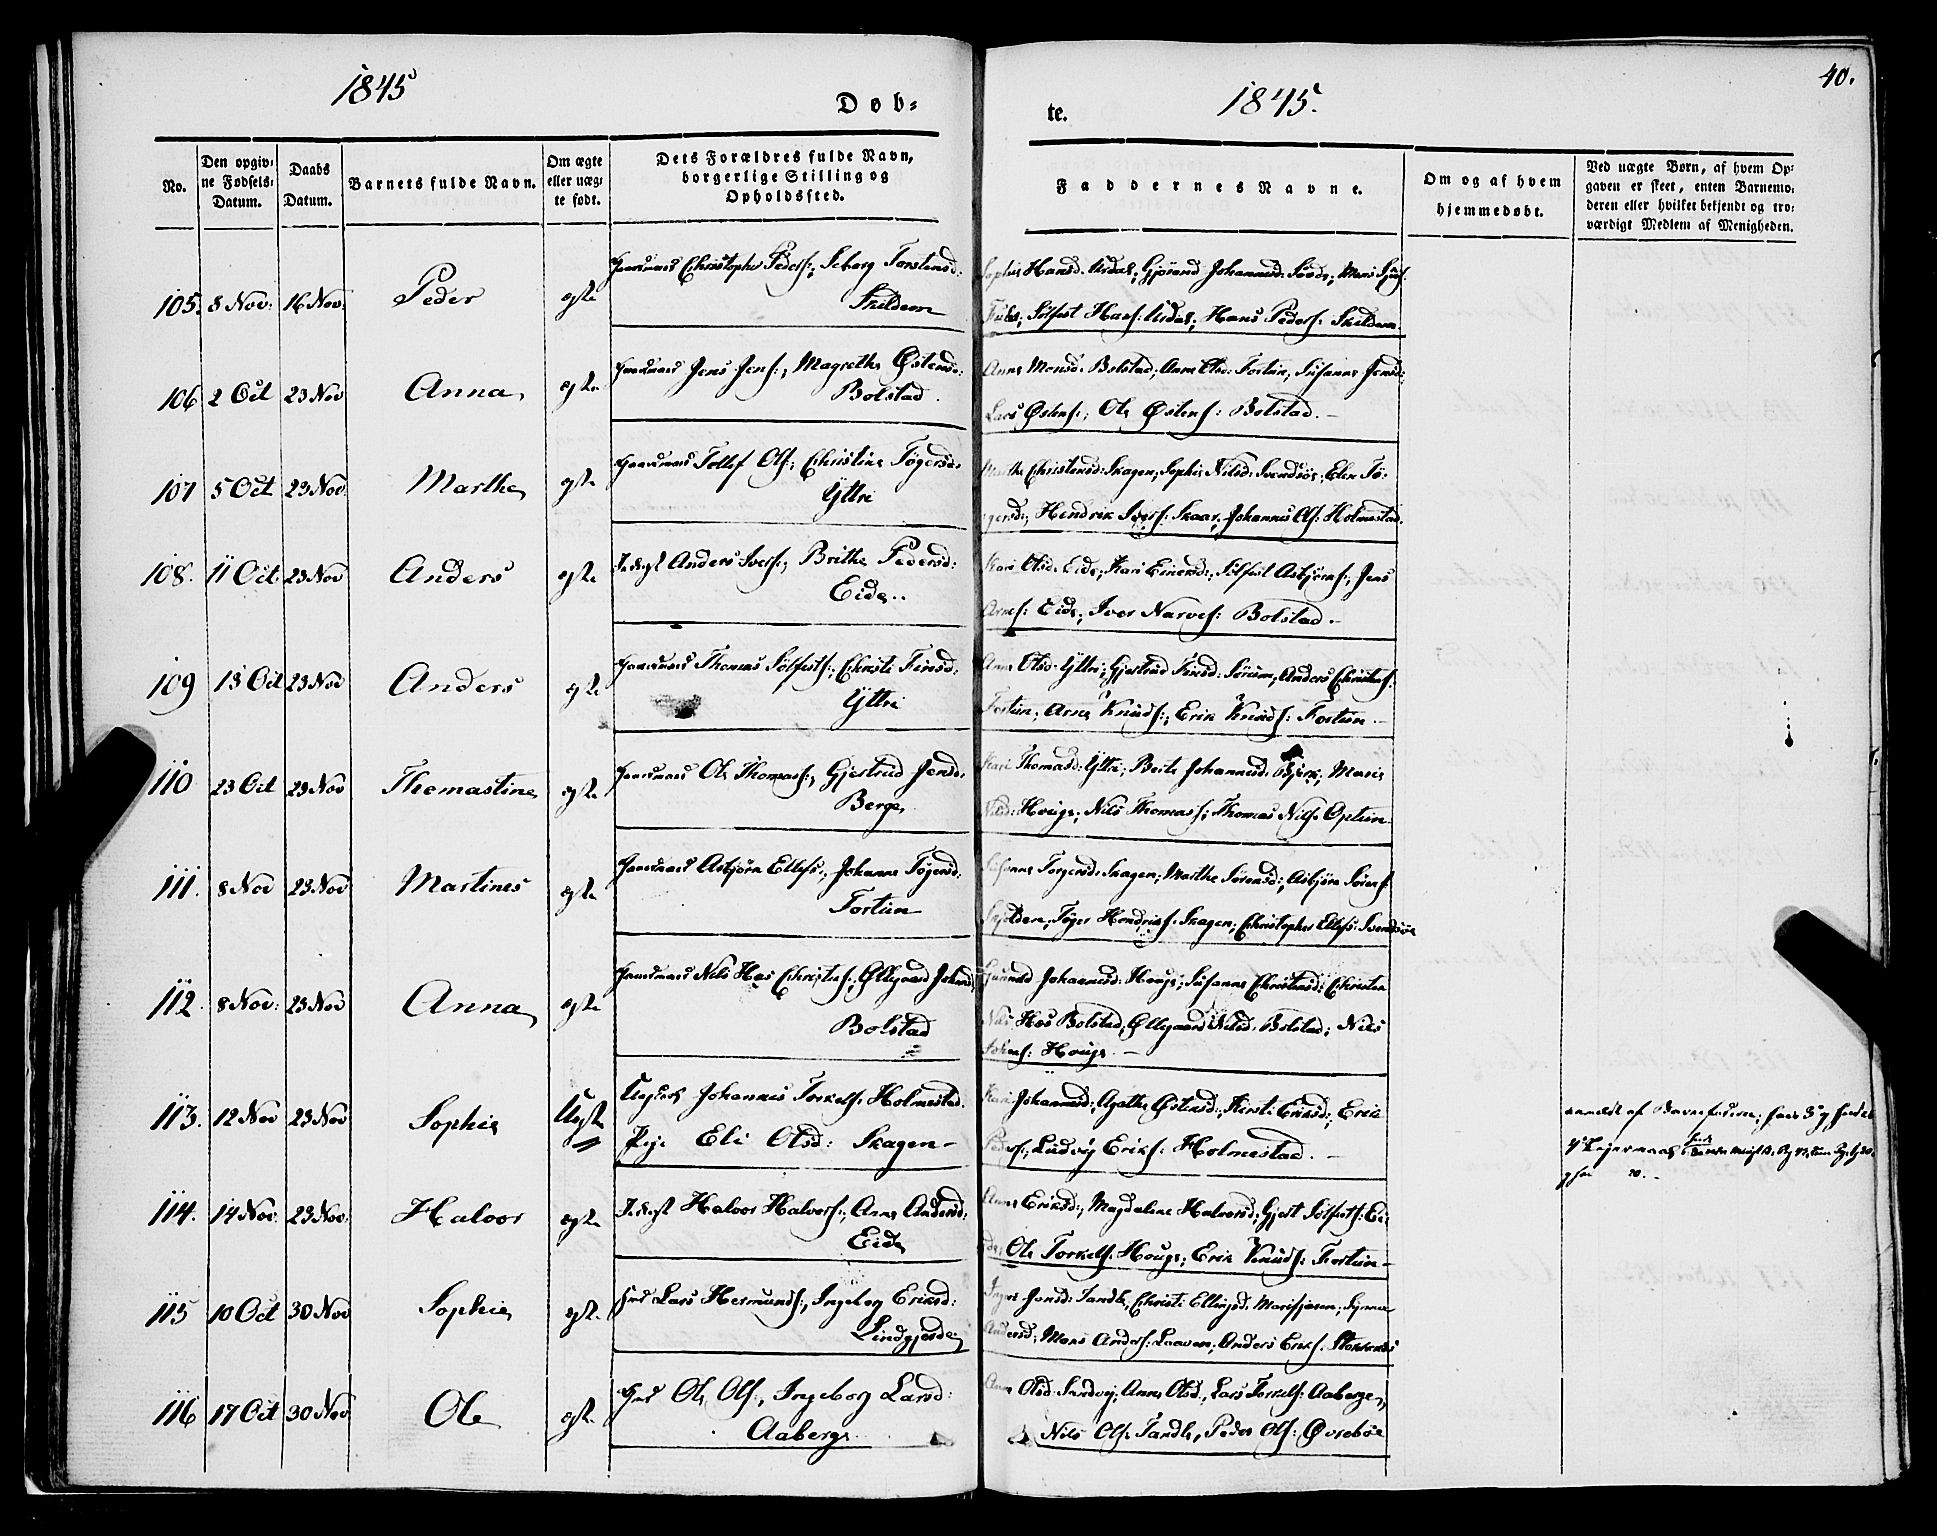 1845
Døb-
te.
1845.
40.
No.
Den opgiv-
ne Fødsels-
Datum.
Daabs
Datum.
Barnets fulde Navn.
Om ægte
eller uæg-
te født.
Dets Forældres fulde Navn,
borgerlige Stilling og
Opholdssted.
Faddernes Navne.
Om og af hvem
hjemmedøbt.
Ved uægte Børn, af hvem Op-
gaven er skeet, enten Barnemo-
deren eller hvilket bekjendt og tro-
værdigt Medlem af Menigheden.
105. 8 Nov: 16 Nov: Peder egte Christopher Peders:, Torstensd:
Skildem
Hansd. Urdal; Johannesd:
Solfest Hans: Urdal; Hans Peders: Skildem.
106 2 Oct 23 Nov Anna egte Jens Jens:, Magrethe Østensd:
Bolstad.
Anna Monsd. Bolstad; Anna Olsd: Fortun, Susanne Jensd:
Lars Østens:; Ole Østens: Bolstad.
107 5 Oct 23 Nov Marthe egte Tollef Ols:, Christine Tøgersd.
Yttri
Christensd: Skagen; Sophie Nilsd: Svendsøe; Elen Tø-
gersd:, Hendrik Ivers: Skaar, Johannes Ols: Holmestad.
108. 11 Oct 23 Nov Anders egte Anders Ivers:, Brithe Pedersd:
Eide.
Kari Olsd. Eide; Kari Einersd:, Solfest Asbjørns:, Jens
Arnes: Eide; Iver Narves: Bolstad.
109 13 Oct 23 Nov Anders egte Thomas Solfests:, Christi Finsd:
Yttri
Anna Olsd. Yttri; Gjertrud Finsd: Sørum, Anders Christens:
Fortun, Arne Knuds:; Erik Knuds: Fortun.
110 23 Oct 23 Nov Thomastine egte Ole Thomass:, Gjertrud Jensd.
Berge
Kari Thomasd: Yttri; Berte Johannesd. Bjørk; Marie
Nilsd: Houge; Nils Thomass:; Thomas Nils: Optun
111. 8 Nov 23 Nov Martines egte Asbjørn Ellefs:, Johanne Tøgersd.
Fortun
Torgersd: Skagen; Marthe Sørensd:, Asbjørn Sørens:
Skjolden, Tøger Hendriks: Skagen; Christopher Ellefs: Svendsøe
112. 8 Nov: 23 Nov Anna egte Nils Has Christens:, Øllegaard Johansd:
Bolstad
Johannesd: Houge; Susanne Christensd: Christen
Nils: Has Bolstad, Øllegaard Nilsd. Bolstad; Nils
Johans: Houge.
113. 12 Nov 23 Nov Sophie Uegte Ungkarl Johannes Torkels: Holmestad.
Pige Eli Olsd: Skagen
Kari Johannesd:, Agathe Østensd:, Kirsti Eriksd:; Erik
Peders:, Ludvig Eriks: Holmestad.
anmeldt af Barnefaderen;
Leiermaal
114. 14 Nov. 23 Nov. Halvor egte Halvor Halvors:, Anna Andersd:
Eide
Anna Eriksd:, Magdalene Halvorsd:; Gjert Solfests: Ei-
de; Ole Torkels: Houge; Erik Knuds: Fortun
115 10 Oct 30 Nov Sophie egte. Lars Hermunds:, Ingeborg Eriksd:
Lindgjerde
Jonsd: Tandle, Christi Ellingsd. Marifjæren;
Andersd; Mons Anders: Laaven; Anders Eriks. Stokkenæs
116 17 Oct 30 Nov Ole egte. Ole Ols:, Ingeborg Larsd:
Aaberge.
Anna Olsd: Sandvig; Anna Olsd:, Lars Torkels: Aaberge,
Nils Ols: Tandle, Peder Ols: Øvrebøe